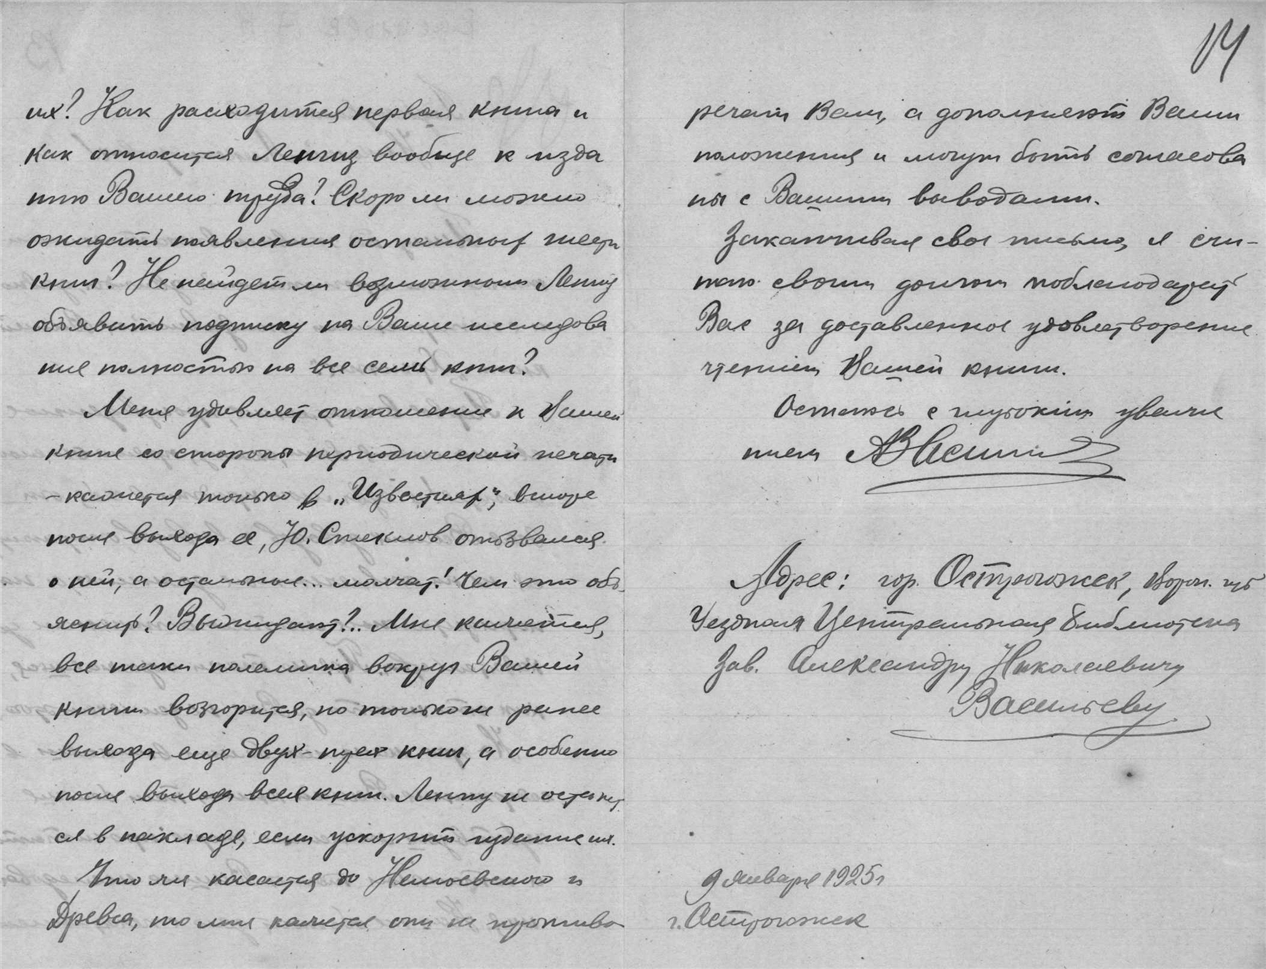 их? Как расходится первая книга и
как относится Ленгиз вообще к изда
нию Вашего труда? Скоро ли можно
ожидать появления остальных шести
книг? Не найдет ли возможным Ленгиз
объявить подписку на Ваше исследова
ние полностью на все семь книг?
Меня удивляет отношение к Вашей
книге со стороны периодической печати
- кажется только в „Известиях“, вскоре
после выхода ее, Ю. Стеклов отозвался
о ней, а остальные... молчат! Чем это объ-
яснить? Выжидают?.. Мне кажется,
все таки полемика вокруг Вашей
книги возгорится, но только не ранее
выхода еще двух-трех книг, а особенно
после выхода всех книг. Ленгиз не останет
ся в накладе, если ускорит издание их.
Что же касается до Немоевского и
Древса, то мне кажется они не противо
14
речат Вам, а дополняют Ваши
положения и могут быть согласова
ны с Вашими выводами.
Заканчивая свое письмо, я счи-
таю своим долгом поблагодарить
Вас за доставленное удовлетворение
чтением Вашей книги.
Остаюсь с глубоким уваже
нием АВасильев
Адрес: гор. Острогожск, Ворон. губ
Уездная Центральная библиотека
Зав. Александру Николаевичу
Васильеву
9 января 1925 г
г. Острогожск